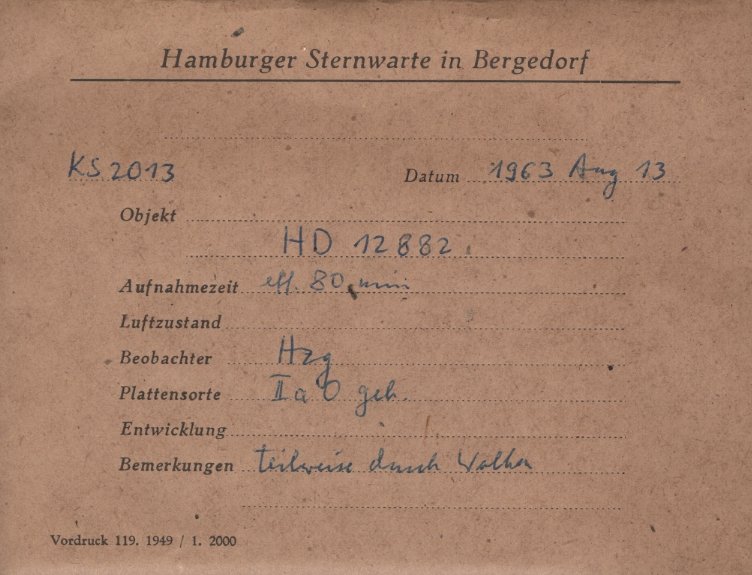 Hamburger Sternwarte in Bergedorf
KS 2013 Datum 1963 Aug 13
Objekt
HD 12882
Aufnahmezeit eff. 80 min
Luftzustand
Beobachter Hzg
Plattensorte II a O geh.
Entwicklung
Bemerkungen teilweise durch Wolken
Vordruck 119. 1949 / 1. 2000